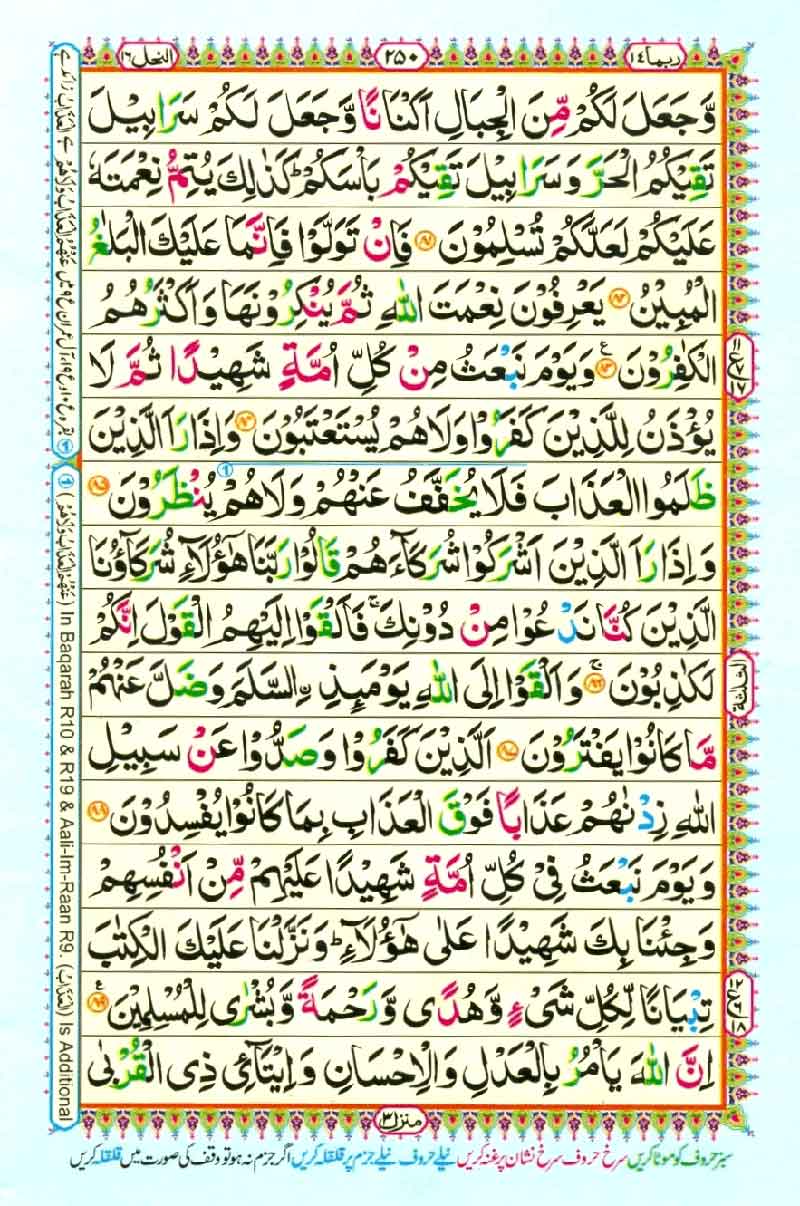 ربما ١٤
٢٥٠
النحل ١٦
وَّجَعَلَ لَكُمْ مِّنَ الْجِبَالِ اَكْنَانًا وَّجَعَلَ لَكُمْ سَرَابِيْلَ
تَقِيْكُمُ الْحَرَّ وَسَرَابِيْلَ تَقِيْكُمْ بَاْسَكُمْ ؕ كَذٰلِكَ يُتِمُّ نِعْمَتَهٗ
عَلَيْكُمْ لَعَلَّكُمْ تُسْلِمُوْنَ ﴿٨١﴾ فَاِنْ تَوَلَّوْا فَاِنَّمَا عَلَيْكَ الْبَلٰغُ
الْمُبِيْنُ ﴿٨٢﴾ يَعْرِفُوْنَ نِعْمَتَ اللّٰهِ ثُمَّ يُنْكِرُوْنَهَا وَاَكْثَرُهُمُ
الْكٰفِرُوْنَ ﴿٨٣﴾ وَيَوْمَ نَبْعَثُ مِنْ كُلِّ اُمَّةٍ شَهِيْدًا ثُمَّ لَا
يُؤْذَنُ لِلَّذِيْنَ كَفَرُوْا وَلَاهُمْ يُسْتَعْتَبُوْنَ ﴿٨٤﴾ وَاِذَا رَاَ الَّذِيْنَ
ظَلَمُوا الْعَذَابَ فَلَا يُخَفَّفُ عَنْهُمْ وَلَاهُمْ يُنْظَرُوْنَ ﴿٨٥﴾
وَاِذَا رَاَ الَّذِيْنَ اَشْرَكُوْا شُرَكَآءَهُمْ قَالُوْا رَبَّنَا هٰٓؤُلَآءِ شُرَكَآؤُنَا
الَّذِيْنَ كُنَّا نَدْعُوْا مِنْ دُوْنِكَ ۚ فَاَلْقَوْا اِلَيْهِمُ الْقَوْلَ اِنَّكُمْ
لَكٰذِبُوْنَ ﴿٨٦﴾ وَاَلْقَوْا اِلَى اللّٰهِ يَوْمَئِذِ ِۨالسَّلَمَ وَضَلَّ عَنْهُمْ
مَّا كَانُوْا يَفْتَرُوْنَ ﴿٨٧﴾ اَلَّذِيْنَ كَفَرُوْا وَصَدُّوْا عَنْ سَبِيْلِ
اللّٰهِ زِدْنٰهُمْ عَذَابًا فَوْقَ الْعَذَابِ بِمَا كَانُوْا يُفْسِدُوْنَ ﴿٨٨﴾
وَيَوْمَ نَبْعَثُ فِيْ كُلِّ اُمَّةٍ شَهِيْدًا عَلَيْهِمْ مِّنْ اَنْفُسِهِمْ
وَجِئْنَا بِكَ شَهِيْدًا عَلٰى هٰٓؤُلَآءِ ؕ وَنَزَّلْنَا عَلَيْكَ الْكِتٰبَ
تِبْيَانًا لِّكُلِّ شَيْءٍ وَّهُدًى وَّرَحْمَةً وَّبُشْرٰى لِلْمُسْلِمِيْنَ ﴿٨٩﴾
اِنَّ اللّٰهَ يَاْمُرُ بِالْعَدْلِ وَالْاِحْسَانِ وَاِيْتَآئِ ذِي الْقُرْبٰى
الثلثة
منزل ٣
سبز حروف کو موٹا کریں سرخ حروف سرخ نشان پر غنہ کریں نیلے حروف نیلے جزم پر قلقلہ کریں اگر جزم نہ ہو تو وقف کی صورت میں قلقلہ کریں
(عَنْهُمُ الْعَذَابُ وَلَاهُمْ) In Baqarah R10 & R19 & Aali-Im-Raan R9. (الْعَذَابُ) Is Additional